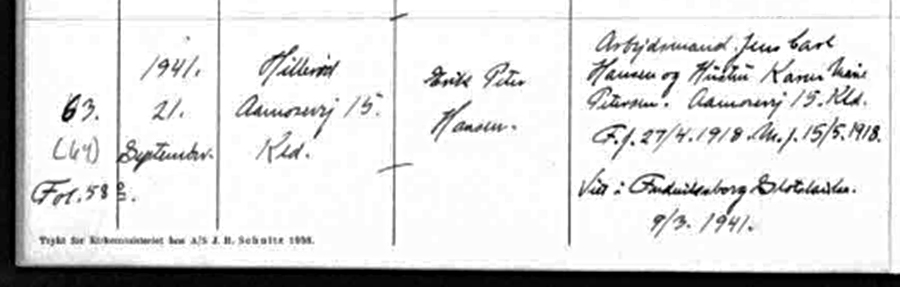 63.
(64)
Fol. 58
1941.
21.
September.
Hillerød
Aamosevej 15.
Kld.
Erik Peter
Hansen.
Arbejdsmand Jens Carl
Hansen og Hustru Karen Marie
Petersen. Aamosevej 15. Kld.
F.f. 27/4. 1918. M.f. 15/5. 1918.
Viet i Frederiksborg Slotskirke.
9/3. 1941.
Trykt for Kirkeministeriet hos A/S J. H. Schultz